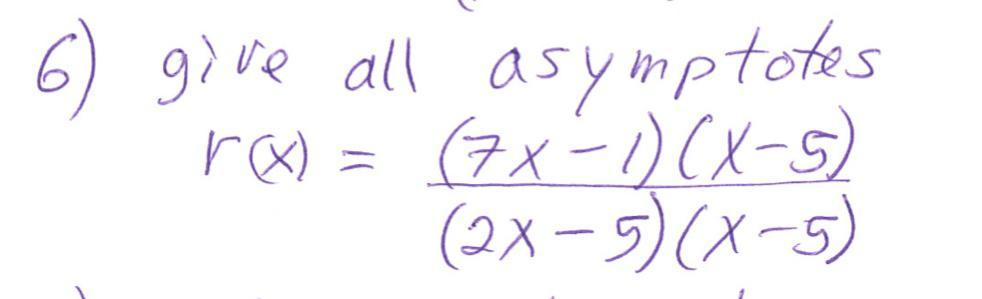 6) give all asymptotes
r(x) = (7x-1)(x-5)
(2x-5)(x-5)